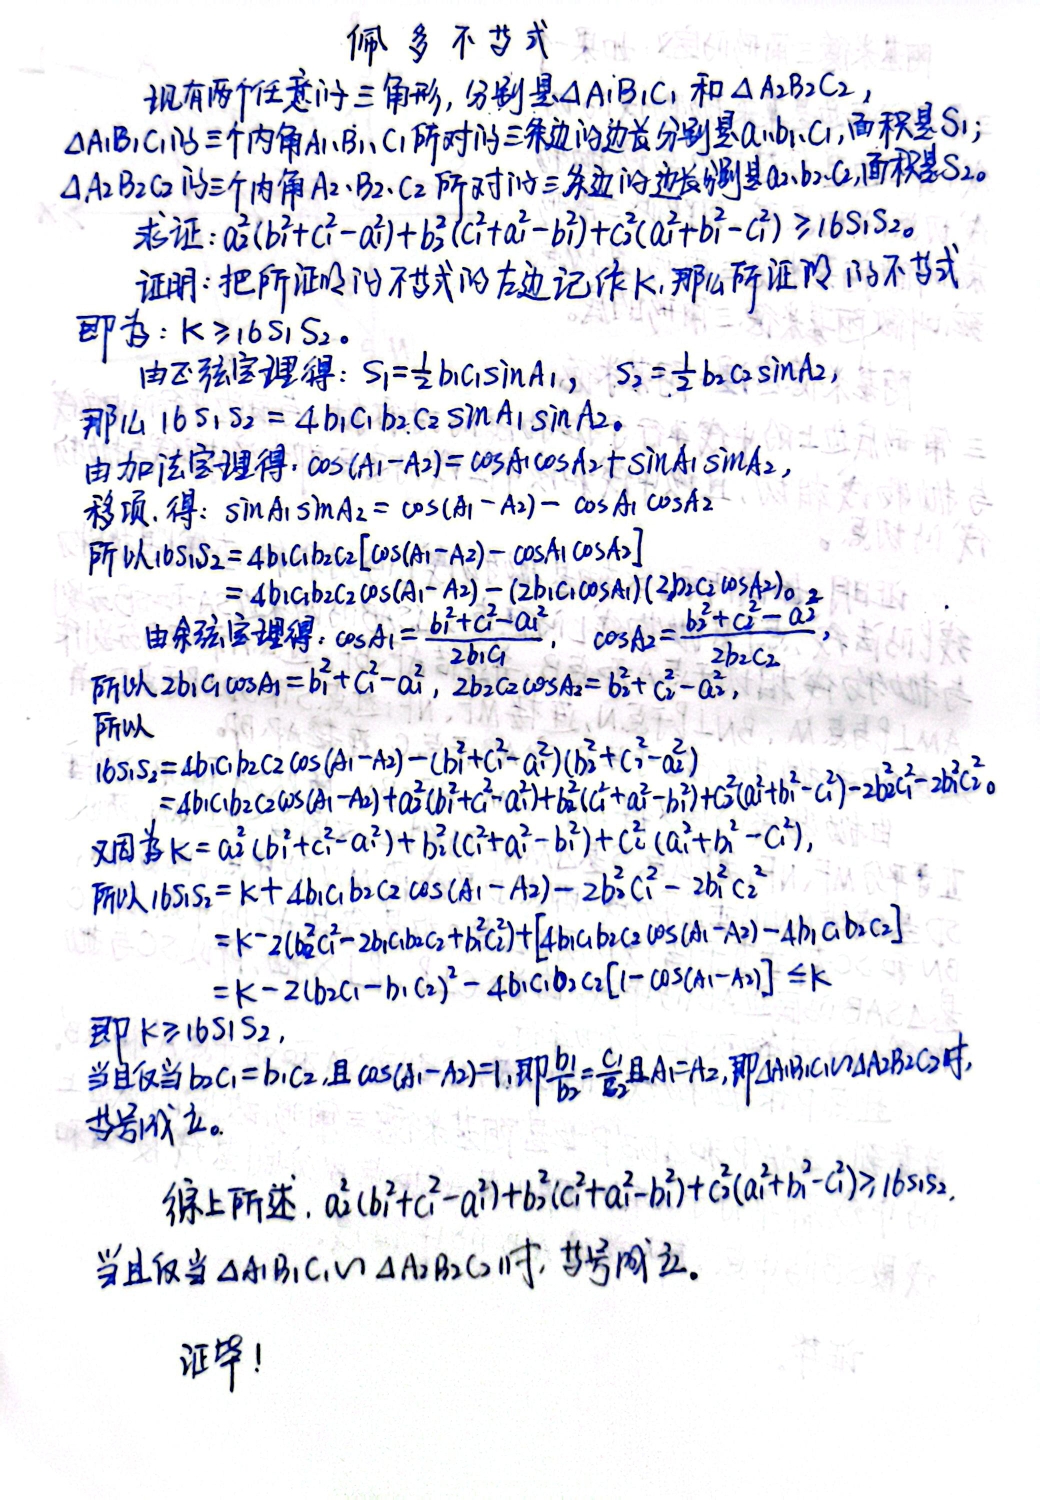 佩多不等式
现有两个任意的三角形，分别是△A₁B₁C₁ 和 △A₂B₂C₂，
△A₁B₁C₁的三个内角A₁、B₁、C₁所对的三条边的边长分别是a₁、b₁、c₁，面积是S₁；
△A₂B₂C₂的三个内角A₂、B₂、C₂所对的三条边的边长分别是a₂、b₂、c₂，面积是S₂。
求证：a₂²(b₁²+c₁²-a₁²)+b₂²(c₁²+a₁²-b₁²)+c₂²(a₁²+b₁²-c₁²)≥16S₁S₂。
证明：把所证明的不等式的左边记作K，那么所证明的不等式
即为：K≥16S₁S₂。
由正弦定理得：S₁=½b₁c₁sinA₁， S₂=½b₂c₂sinA₂，
那么16S₁S₂=4b₁c₁b₂c₂sinA₁sinA₂。
由加法定理得：cos(A₁-A₂)=cosA₁cosA₂+sinA₁sinA₂，
移项，得：sinA₁sinA₂=cos(A₁-A₂)-cosA₁cosA₂
所以16S₁S₂=4b₁c₁b₂c₂[cos(A₁-A₂)-cosA₁cosA₂]
=4b₁c₁b₂c₂cos(A₁-A₂)-(2b₁c₁cosA₁)(2b₂c₂cosA₂)。
由余弦定理得：cosA₁=(b₁²+c₁²-a₁²)/2b₁c₁， cosA₂=(b₂²+c₂²-a₂²)/2b₂c₂，
所以2b₁c₁cosA₁=b₁²+c₁²-a₁²，2b₂c₂cosA₂=b₂²+c₂²-a₂²，
所以
16S₁S₂=4b₁c₁b₂c₂cos(A₁-A₂)-(b₁²+c₁²-a₁²)(b₂²+c₂²-a₂²)
=4b₁c₁b₂c₂cos(A₁-A₂)+a₂²(b₁²+c₁²-a₁²)+b₂²(c₁²+a₁²-b₁²)+c₂²(a₁²+b₁²-c₁²)-2b₂²c₁²-2b₁²c₂²。
又因为K=a₂²(b₁²+c₁²-a₁²)+b₂²(c₁²+a₁²-b₁²)+c₂²(a₁²+b₁²-c₁²)，
所以16S₁S₂=K+4b₁c₁b₂c₂cos(A₁-A₂)-2b₂²c₁²-2b₁²c₂²
=K-2(b₂²c₁²-2b₁c₁b₂c₂+b₁²c₂²)+[4b₁c₁b₂c₂cos(A₁-A₂)-4b₁c₁b₂c₂]
=K-2(b₂c₁-b₁c₂)²-4b₁c₁b₂c₂[1-cos(A₁-A₂)]≤K
即K≥16S₁S₂，
当且仅当b₂c₁=b₁c₂，且cos(A₁-A₂)=1，即b₁/b₂=c₁/c₂且A₁=A₂，即△A₁B₁C₁∽△A₂B₂C₂时，
等号成立。
综上所述，a₂²(b₁²+c₁²-a₁²)+b₂²(c₁²+a₁²-b₁²)+c₂²(a₁²+b₁²-c₁²)≥16S₁S₂，
当且仅当△A₁B₁C₁∽△A₂B₂C₂时，等号成立。
证毕！